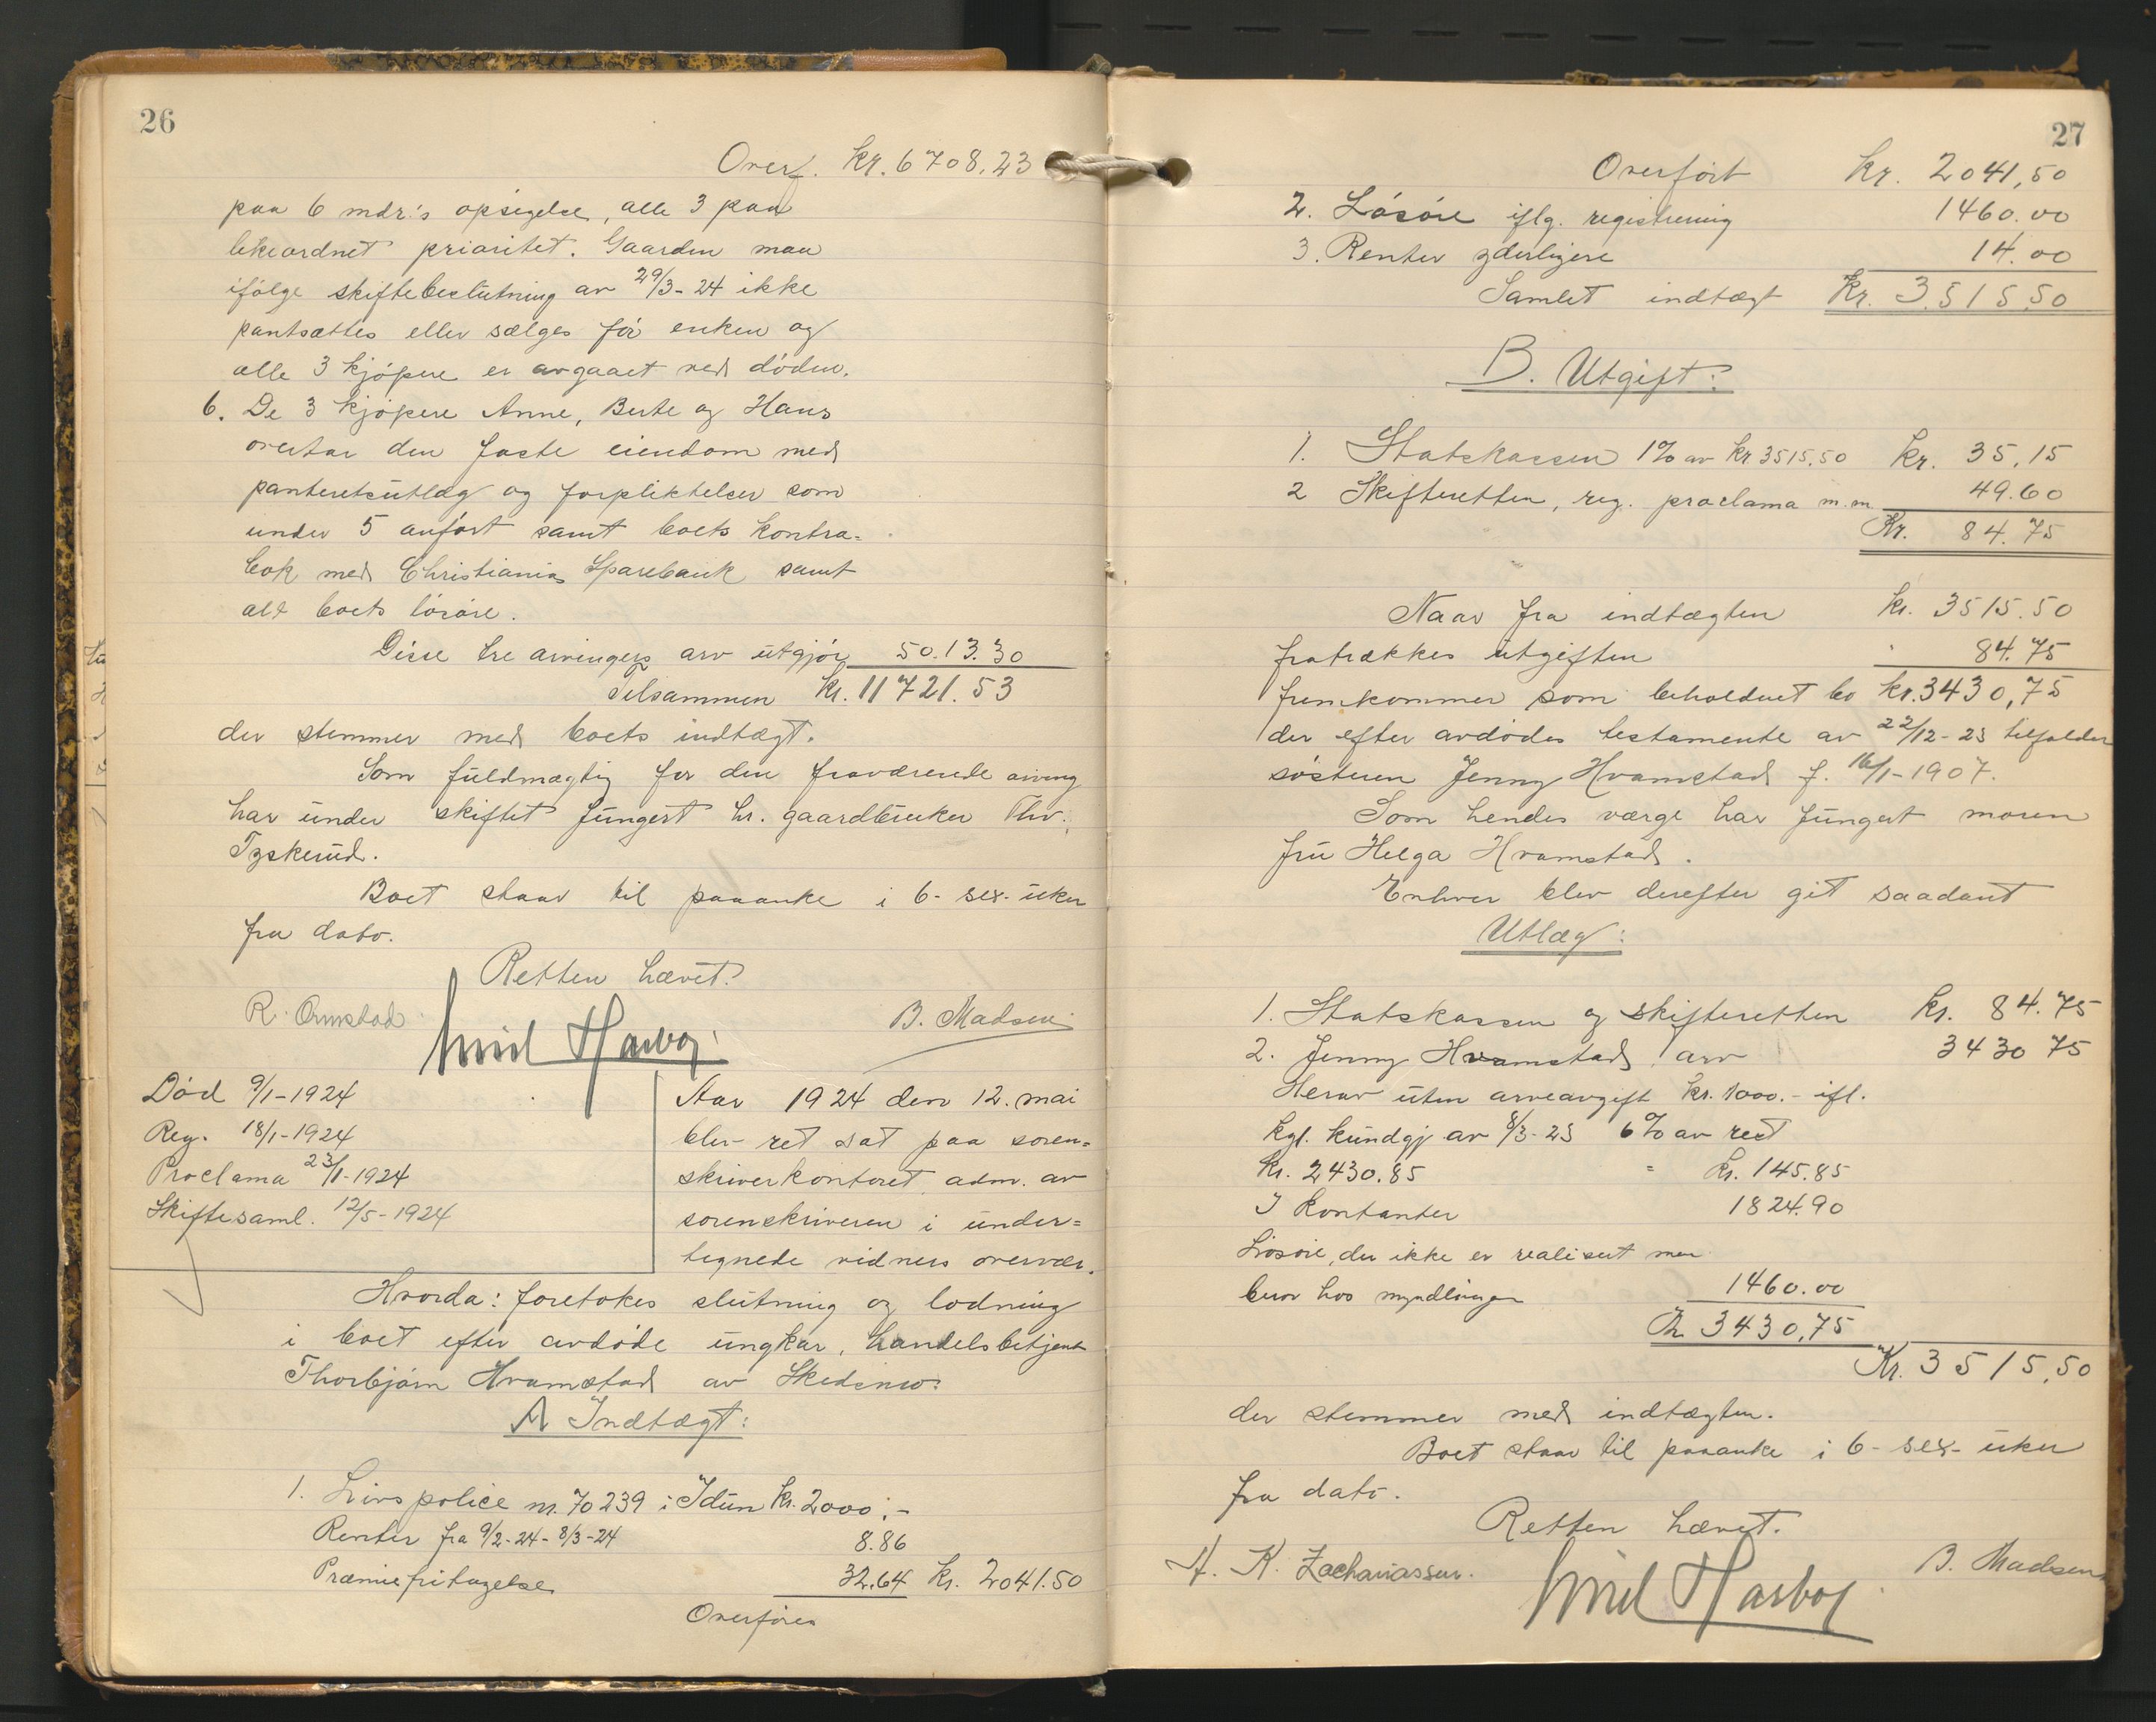 26
Overf. kr. 6708.23
paa 6 mdr.'s opsigelse, alle 3 paa
likeordnet prioritet. Gaarden maa
ifølge skiftebeslutning av 29/3-24 ikke
pantsættes eller sælges før enken og
alle 3 kjøpere er avgaaet ved døden.
6. De 3 kjøpere Anne, Berte og Hans
overtar den faste eiendom med
panteretsutlæg og forpliktelser som
under 5 anført samt boets kontra-
bok med Christiania Sparebank samt
alt boets løsøre.
Disse tre arvingers arv utgjør 5013.30
Tilsammen kr. 11721.53
der stemmer med boets indtægt.
Som fuldmægtig for den fraværende arving
har under skiftet fungert hr. gaardbruker Thv.
Tyskerud.
Boet staar til paaanke i 6- sex- uker
fra dato.
Retten hævet.
R. Ormstad
Emil Harboe
B. Madsen
Død 9/1-1924
Reg. 18/1-1924
Proclama 23/1-1924
Skiftesaml. 12/5-1924
Aar 1924 den 12. mai
blev ret sat paa soren-
skriverkontoret, adm. av
sorenskriveren i under-
tegnede vidners overvær.
Hvorda: foretokes slutning og lodning
i boet efter avdøde ungkar, handelsbetjent
Thorbjørn Hvamstad av Skedsmo:
A Indtægt:
1. Livspolice nr. 70239 i Idun kr. 2000.-
Renter fra 9/2-24 - 8/3-24 8.86
Præmiefritagelse 32.64 kr. 2041.50
Overføres
27
Overført kr. 2041,50
2. Løsøre iflg. registrering 1460.00
3. Renter yderligere 14.00
Samlet indtægt kr. 3515.50
B. Utgift:
1. Statskassen 1% av kr 3515.50 kr. 35.15
2 Skifteretten, reg. proclama m.m. 49.60
Kr. 84.75
Naar fra indtægten kr. 3515.50
fratrækkes utgiften 84.75
fremkommer som beholdent bo kr. 3430,75
der efter avdødes testamente av 22/12-23 tilfalder
søsteren Jenny Hvamstad f. 16/1-1907.
Som hendes værge har fungert moren
fru Helga Hvamstad.
Enhver blev derefter git saadant
Utlæg:
1. Statskassen og skifteretten kr. 84.75
2. Jenny Hvamstad, arv 3430 75
Herav uten arveavgift kr. 1000.- ifl.
kgl. kundgj av 8/3-23 6% av rest
kr. 2430.85 = kr. 145.85
I kontanter 1824.90
Løsøre, der ikke er realisert men
beror hos myndlingen 1460.00
Kr 3430,75
Kr. 3515,50
der stemmer med indtægten.
Boet staar til paaanke i 6- sex- uker
fra dato.
Retten hævet.
A. K. Zachariassen.
Emil Harboe
B. Madsen